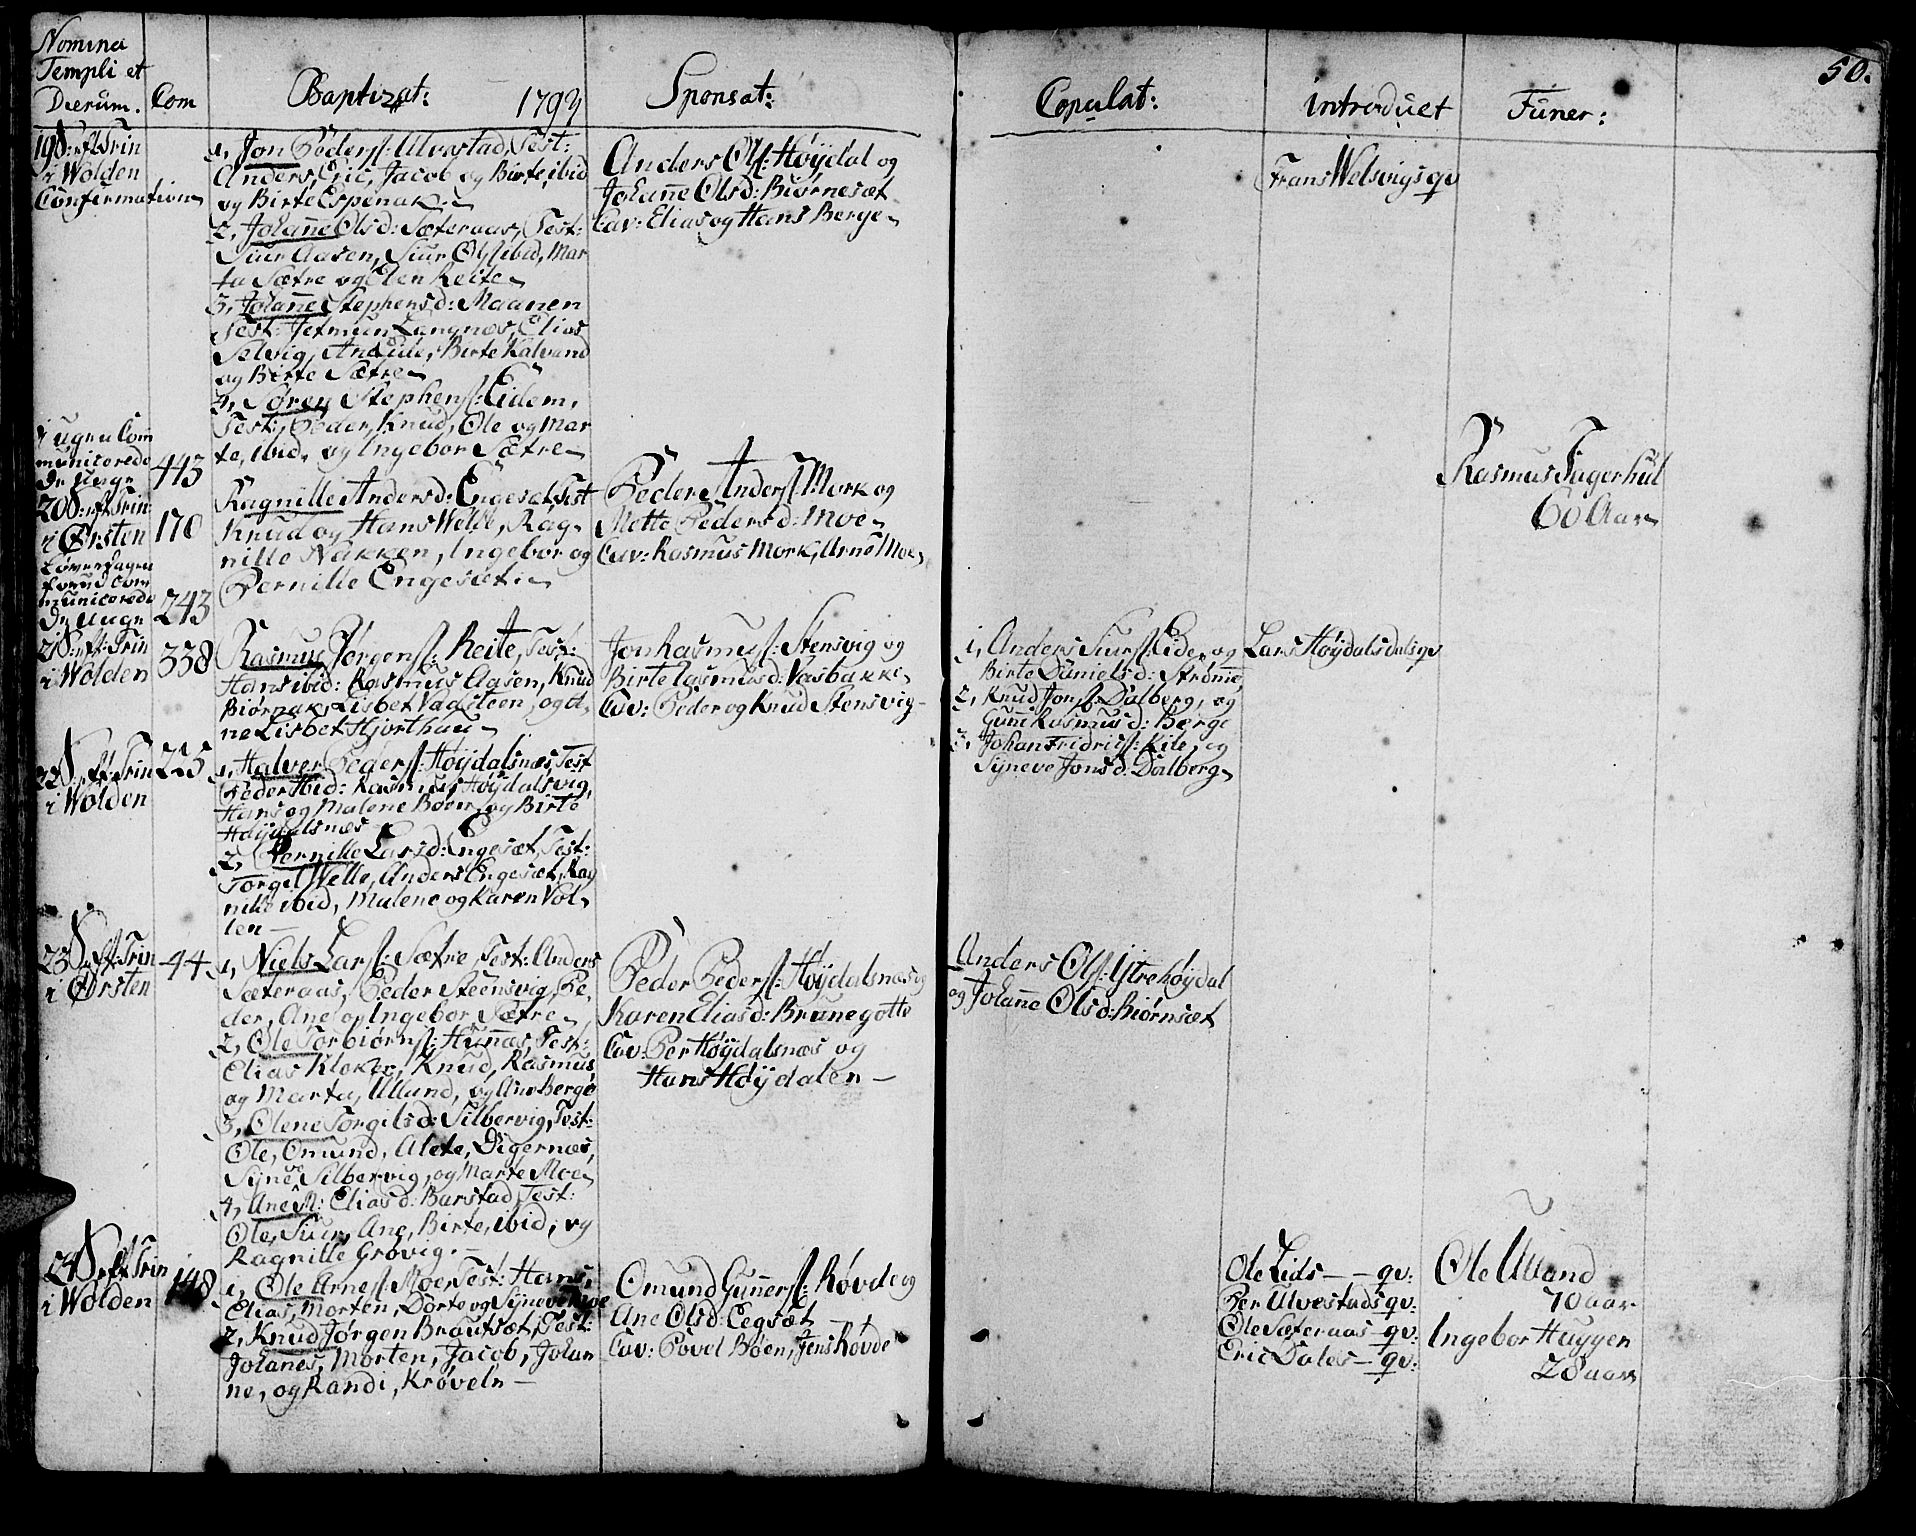 50.
Nomina
Templi et
Dierum.
Com
Baptizat: 1793
Sponsat:
Copulat:
introduct
Funer:
19 S: eft: Trin
i Wolden
Confirmation
1, Jon Peders: Ulvestad, Test:
Anders, Eric, Jacob og Birte, ibid
og Birte Espenak.
2, Johanne Olsd: Sæteraas, Test:
Siur Aasen, Siur Ols ibid, Mar
ta Sætre og Elen Reite
3, Johanne Stephensd: Maanen
Test: Jetmun Langnæs, Elias
Selvig, An Eide, Birte Kalvand
og Birte Sætre
4, Søren Stephens: Eidem,
Test: Peder, Knud, Ole og Mar
te, ibid, og Ingebor Sætre
Anders Ols: Høydal og
Johanne Olsd: Biørnesæt
Cav: Elias og Hans Berge
Frans Welsvigs qv
i Ugen Com
municerede
De Unge
443
20 S: eft: Trin:
i Ørsten
170
Ragnille Andersd: Engesæt, Test
Knud og Hans Welle, Rag
nille Nakken, Ingebor og
Pernille Engesæt
Peder Anders: Mork og
Mette Pedersd: Moe
Cav: Rasmus Mork, Arne Moe
Rasmus Fagerhul
60 Aar
Løverdagen
forud com
municerede
De Unge
243
21 S: eft: Trin
i Wolden
338
Rasmus Jørgens: Reite, Test:
Hans ibid: Rasmus Aasen, Knud
Biørnak, Lisbet Vagsteen, og A
ne Lisbet Hjorthaug
Jon Rasmus: Stensvig og
Birte Rasmusd: Vasbakke
Cav: Peder og Knud Stensvig
1, Anders Siurs: Eide, og
Birte Danielsd: Strømme,
2, Knud Jons: Dalberg, og
Gunni Rasmusd: Berge
3, Johan Fridrics: Kile, og
Syneve Jonsd: Dalberg
Lars Høydalsdals qv
22 S: eft: Trin
i Wolden
225
1, Halver Peders: Høydalsnæs, Test
Peder ibid: Rasmus Høydalsvig,
Hans og Malene Bøen, og Birte
Høydalsnæs
2, Pernille Larsd: Engesæt, Test:
Torgel Welle, Anders Engesæt, Rag
nille ibid, Malene og Karen Vol
den
23 S: eft: Trin
i Ørsten
44
1, Niels Lars: Sætre, Test: Anders
Sæteraas, Peder Steensvig, Pe
der, Ane og Ingebor Sætre
2, Ole Torbiørns: Hunnæs, Test:
Elias Kloker, Knud, Rasmus,
og Marta, Ulland, og Ane Berge
3, Olene Torgilsd: Silbervig, Test:
Ole, Omund, Alete, Digernæs,
Syneve Silbervig, og Marte Moe
4, Ane M: Eliasd: Barstad, Test:
Ole, Siur, Ane, Birte, ibid, og
Ragnille Grøvig.
Peder Peders: Høydalsnæs og
Karen Eliasd: Brunegotte
Cav: Per Høydalsnæs og
Hans Høydalen
Anders Ols: Ytrehøydal
og Johanne Olsd: Biørnsæt
24 S: eft: Trin
i Wolden
148
1, Ole Arnes: Moe, Test: Hans,
Elias, Morten, Dorte og Syneve Moe
2, Knud Jørgen Brautsæt, Test:
Johanes, Morten, Jacob, Johan
ne, og Randi, Krøveln
Omund Gunners: Røvde og
Ane Olsd: Eegsæt
Cav: Povel Bøen, Jens Røvde
Ole Lids qv:
Per Ulvestads qv:
Ole Sæteraas qv:
Eric Dales qv:
Ole Ulland
70 aar
Ingebor Huggen
28 aar